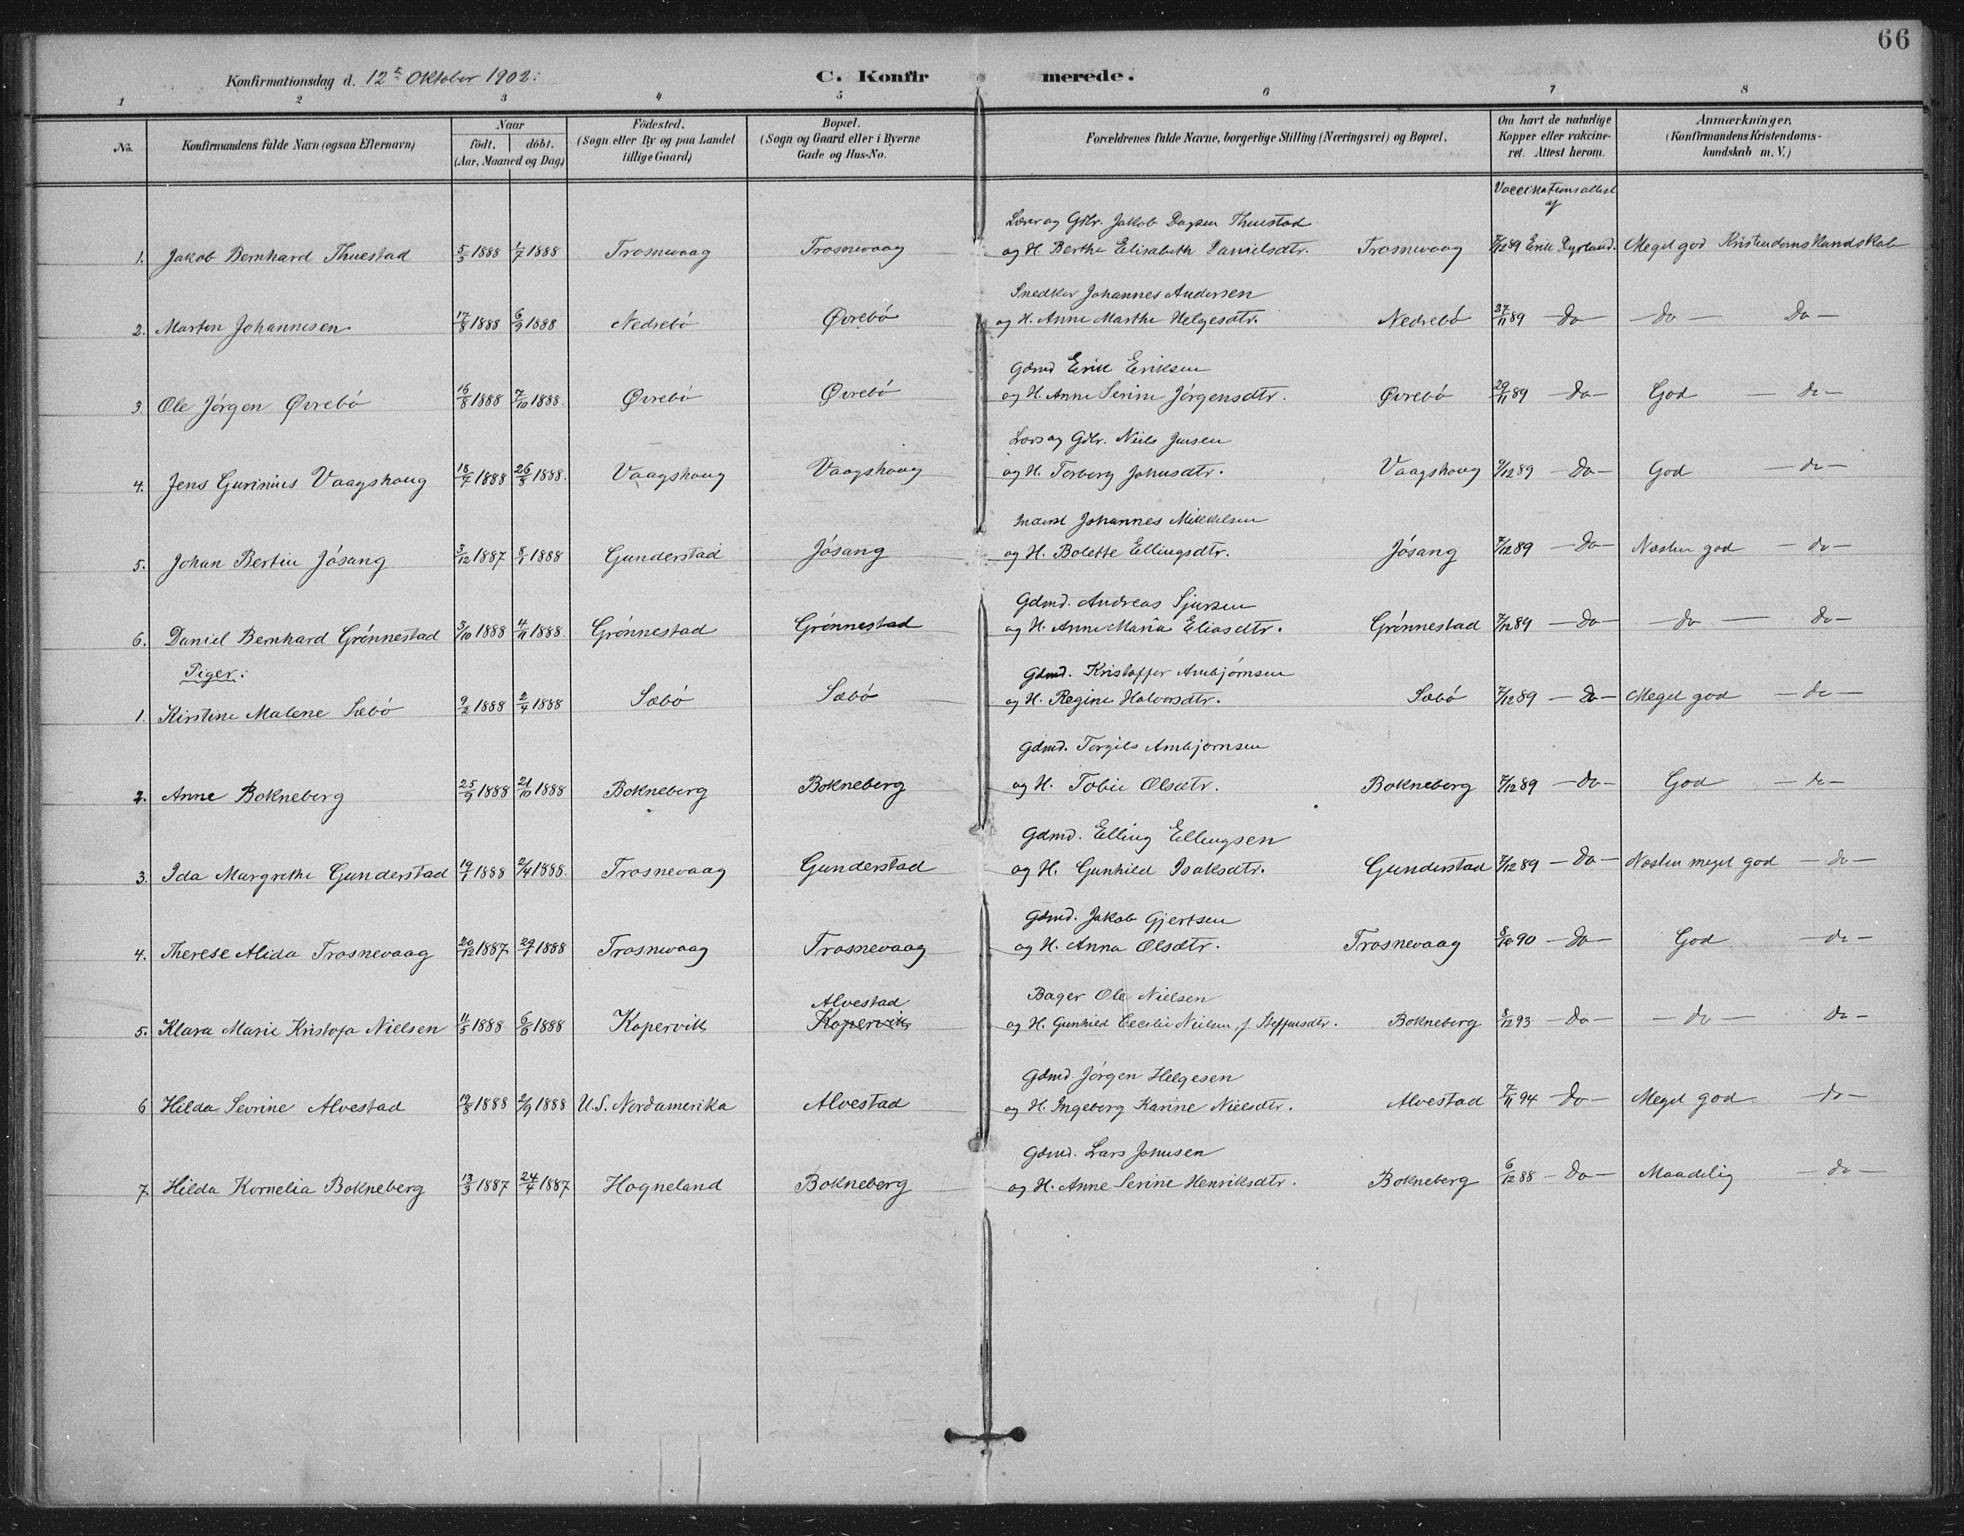 66
Konfirmationsdag d. 12te Oktober 1902. C. Konfirmerede.
1 2 3 4 5 6 7 8
No. Konfirmandens fulde Navn (ogsaa Efternavn) Naar födt. döbt. (Aar, Maaned og Dag) Födested. (Sogn eller By og paa Landet tillige Gaard) Bopæl. (Sogn og Gaard eller i Byerne Gade og Hus-No. Forældrenes fulde Navne, borgerlige Stilling (Næringsvei) og Bopæl. Om havt de naturlige Kopper eller vakcineret. Attest herom. Anmærkninger. (Konfirmandens Kristendomskundskab m. V.)
Vaccinationsattest af
Lærer og Gdbr. Jakob Dagsen Thuestad
1. Jakob Bernhard Thuestad 5/5 1888 1/7 1888 Trosnevaag Trosnevaag og H. Berthe Elisabeth Danielsdtr. Trosnevaag 7/12 89 Erik Dyrland. Meget god Kristendomskundskab
Snedker Johannes Andersen
2. Marton Johannesen 17/8 1888 6/9 1888 Nedrebö Øvrebö og H. Anne Marthe Helgesdtr. Nedrebö 27/11 89 – Do – – Do – Do –
Gdmd Erik Eriksen
3. Ole Jörgen Øvrebö 16/8 1888 7/10 1888. Øvrebö Øvrebö og H. Anne Serine Jörgensdtr. Øvrebö 29/11 89 – Do – God – do –
Niels Jensen
4. Jens Gurinius Vaagshoug 18/7 1888 26/8 1888. Vaagshoug Vaagshoug og H. Torberg Johnsdtr. Vaagshoug 9/12 89 – Do – God – do –
Inderst Johannes Mikkelsen
5. Johan Bertin Jösang 3/12 1887 8/1 1888 Gunderstad Jösang og H. Bolette Ellingsdtr. Jösang 7/12 89 – Do – Næsten god – do –
Gdmd. Andreas Sjursen
6. Daniel Bernhard Grönnestad 3/10 1888 4/11 1888. Grönnestad Grönnestad og H. Anne Maria Eliasdtr. Grönnestad 7/12 89 – Do – – do – do –
Piger:
Gdmd. Kristoffer Ambjörnsen
1. Kirstine Malene Sæbö 9/2 1888 2/4 1888 Sæbö Sæbö og H. Regine Halvorsdtr. Sæbö 7/12 89 – Do – Meget god – do –
Gdmd. Torgils Ambjörnsen
2. Anne Bokneberg 25/9 1888 21/10 1888 Bokneberg Bokneberg og H. Tobie Olsdtr. Bokneberg 7/12 89 – Do – God – do –
Gdmd. Elling Ellingsen
3. Ida Margrethe Gunderstad 19/1 1888 2/4 1888. Trosnevaag Gunderstad og H. Gunhild Isaksdtr. Gunderstad 7/12 89 – Do – Næsten meget god – do –
Gdmd. Jakob Gjertsen
4. Therese Alida Trosnevaag 20/12 1887 29/1 1888 Trosnevaag Trosnevaag og H. Anna Olsdtr. Trosnevaag 8/10 90 – Do – God – do –
Alvestad Bager Ole Nielsen
5. Klara Marie Kristofa Nielsen 11/5 1888 6/6 1888 Kopervik Kopervik og H. Gunhild Cecilie Nielsen, f. Steffensdtr. Bokneberg 8/12 93 – Do – – do – do –
Gdmd. Jörgen Helgesen
6 Hilda Sevrine Alvestad 12/8 1888 2/9 1888 U.S. Nordamerika Alvestad og H. Ingeborg Karine Nielsdtr. Alvestad 7/11 94 – Do – Meget god – do –
Gdmd. Lars Johnsen
7. Hilda Kornelia Bokneberg 13/3 1887 24/4 1887 Hogneland Bokneberg og H. Anne Serine Henriksdtr. Bokneberg 6/12 88 – Do – Maadelig – do –